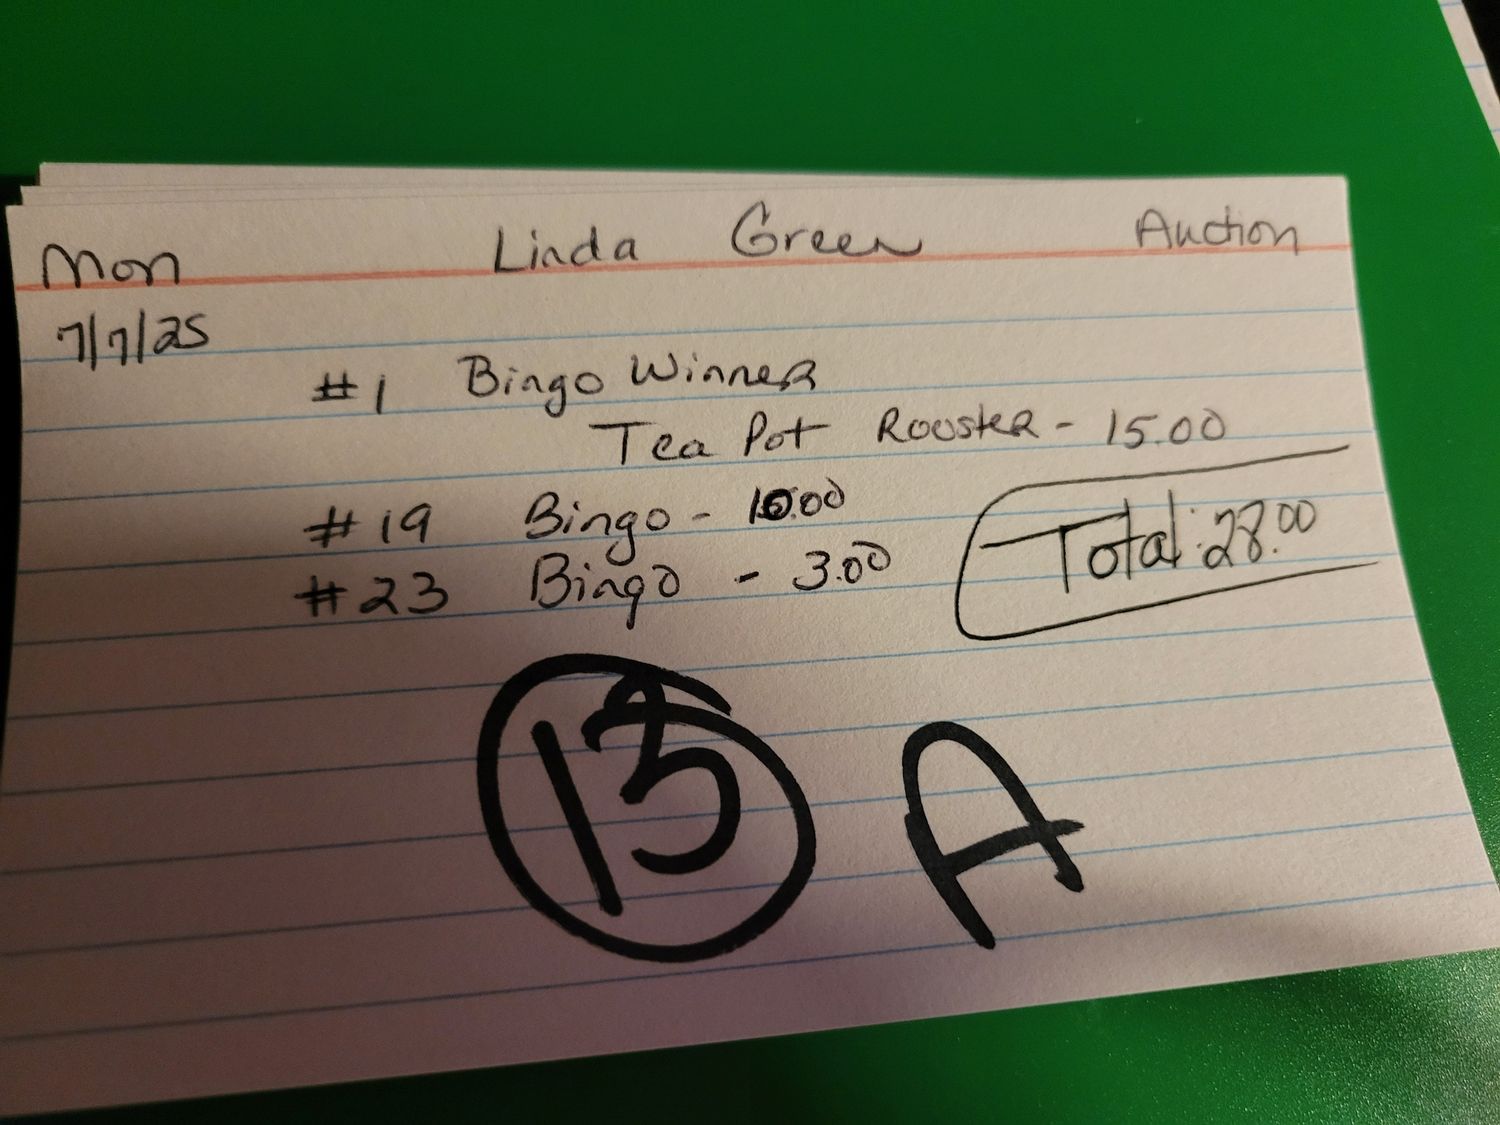 Mon Linda Green Auction
7/7/25
#1 Bingo Winner
Tea Pot Rooster - 15.00
#19 Bingo - 10.00
#23 Bingo - 3.00
Total: 28.00
A